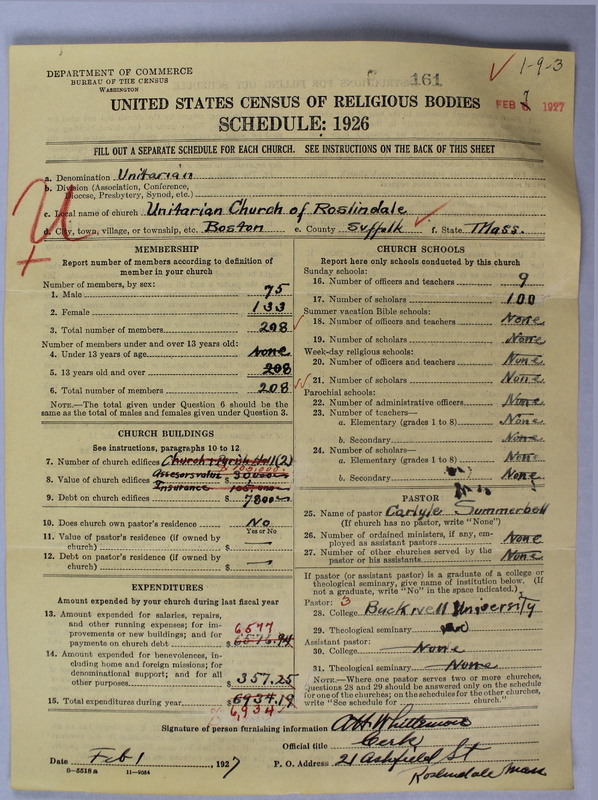 DEPARTMENT OF COMMERCE
BUREAU OF THE CENSUS
WASHINGTON
161
1-9-3
FEB 1927
UNITED STATES CENSUS OF RELIGIOUS BODIES
SCHEDULE: 1926
FILL OUT A SEPARATE SCHEDULE FOR EACH CHURCH. SEE INSTRUCTIONS ON THE BACK OF THIS SHEET
U
a. Denomination Unitarian
b. Division (Association, Conference,
Diocese, Presbytery, Synod, etc.)
c. Local name of church Unitarian Church of Roslindale
d. City, town, village, or township, etc. Boston e. County Suffolk f. State Mass.
MEMBERSHIP
Report number of members according to definition of
member in your church
Number of members, by sex:
1. Male 75
2. Female 133
3. Total number of members 208
Number of members under and over 13 years old:
4. Under 13 years of age None
5. 13 years old and over 208
6. Total number of members 208
NOTE.—The total given under Question 6 should be the
same as the total of males and females given under Question 3.
CHURCH BUILDINGS
See instructions, paragraphs 10 to 12
7. Number of church edifices Church & Parish Hall (2)
105,000
8. Value of church edifices Assessors value $
Insurance
9. Debt on church edifices $ 7800
10. Does church own pastor's residence No
Yes or No
11. Value of pastor's residence (if owned by
church) $
12. Debt on pastor's residence (if owned by
church) $
EXPENDITURES
Amount expended by your church during last fiscal year
13. Amount expended for salaries, repairs,
and other running expenses; for im-
provements or new buildings; and for
payments on church debt $ 6576.94
6577
14. Amount expended for benevolences, in-
cluding home and foreign missions; for
denominational support; and for all
other purposes $ 357.25
15. Total expenditures during year $ 6934.19
6,934
CHURCH SCHOOLS
Report here only schools conducted by this church
Sunday schools:
16. Number of officers and teachers 9
17. Number of scholars 100
Summer vacation Bible schools:
18. Number of officers and teachers None
19. Number of scholars None
Week-day religious schools:
20. Number of officers and teachers None
21. Number of scholars None
Parochial schools:
22. Number of administrative officers None
23. Number of teachers—
a. Elementary (grades 1 to 8) None
b. Secondary None
24. Number of scholars—
a. Elementary (grades 1 to 8) None
b. Secondary None
PASTOR
25. Name of pastor Carlyle Summerbell
(If church has no pastor, write "None")
26. Number of ordained ministers, if any, em-
ployed as assistant pastors None
27. Number of other churches served by the
pastor or his assistants None
If pastor (or assistant pastor) is a graduate of a college or
theological seminary, give name of institution below. (If
not a graduate, write "No" in the space indicated.)
Pastor: 3
28. College Bucknell University
29. Theological seminary
Assistant pastor:
30. College None
31. Theological seminary None
NOTE.—Where one pastor serves two or more churches,
Questions 28 and 29 should be answered only on the schedule
for one of the churches; on the schedules for the other churches,
write "See schedule for church."
Signature of person furnishing information A H Whittemore
Official title Clerk
Date Feb 1, 1927 P. O. Address 21 Ashfield St
Roslindale Mass
8-5518a 11-9054